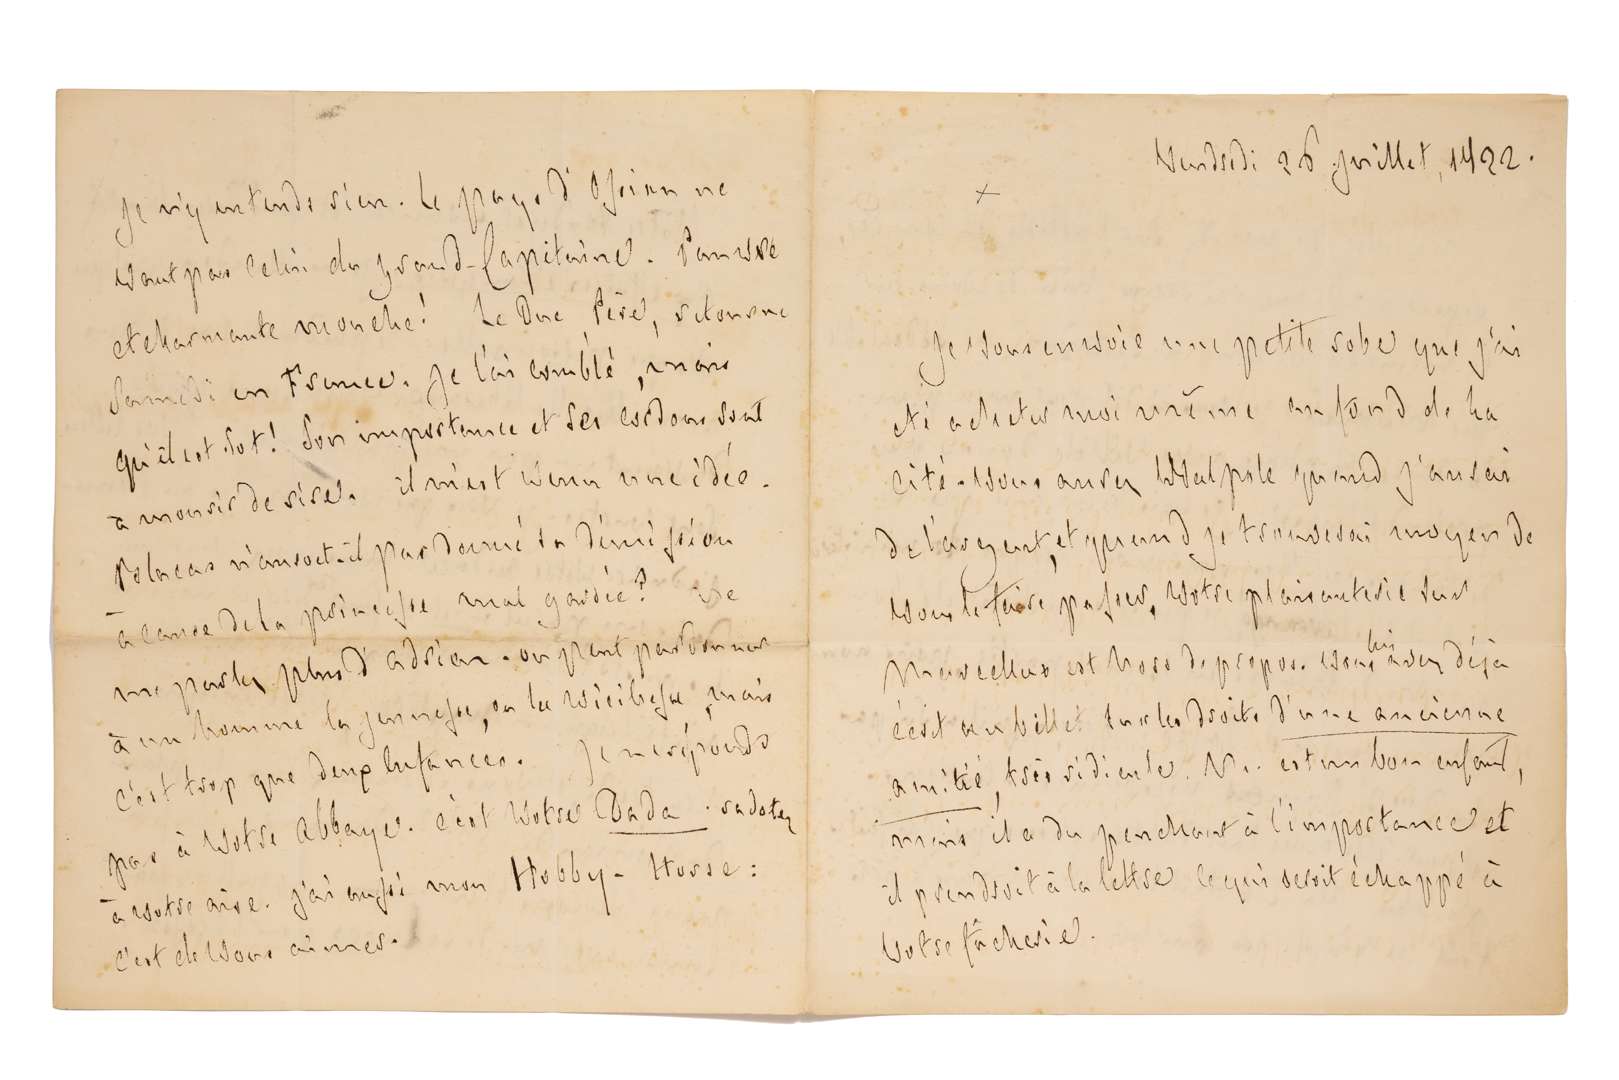 Vendredi 26 juillet, 1822.
Je vous envoie une petite robe que j'ai
été acheter moi même au fond de la
cité. Vous aurez Walpole quand j'aurai
de l'argent, et quand je trouverai moyen de
vous le faire passer. Votre plaisanterie sur
Marcellus est hors de propos. Vous lui avez déjà
écrit un billet sur les droits d'une ancienne
amitié, très ridicule. M.. est un bon enfant,
mais il a du penchant à l'importance et
il prendroit à la lettre ce qui seroit échappé à
votre fâcherie.
Je n'y entends rien. Le pays d'Ossian ne
vaut pas celui du grand-Capitaine. Pauvre
et charmante mouche! Le Duc Père, retourne
Samedi en France. Je l'ai comblé, mais
qu'il est sot! Son importance et ses cordons sont
à mourir de rire. il m'est venu une idée.
Blacas n'auroit-il pas donné sa démission
à cause de la princesse mal gardée? Ne
me parlez plus d'adrien. on peut pardonner
à un homme la jeunesse, ou la vieillesse, mais
c'est trop que deux enfances. Je ne réponds
pas à votre abbaye. c'est votre Dada. radotez
à votre aise. j'ai aussi mon Hobby-Horse:
c'est de vous aimer.